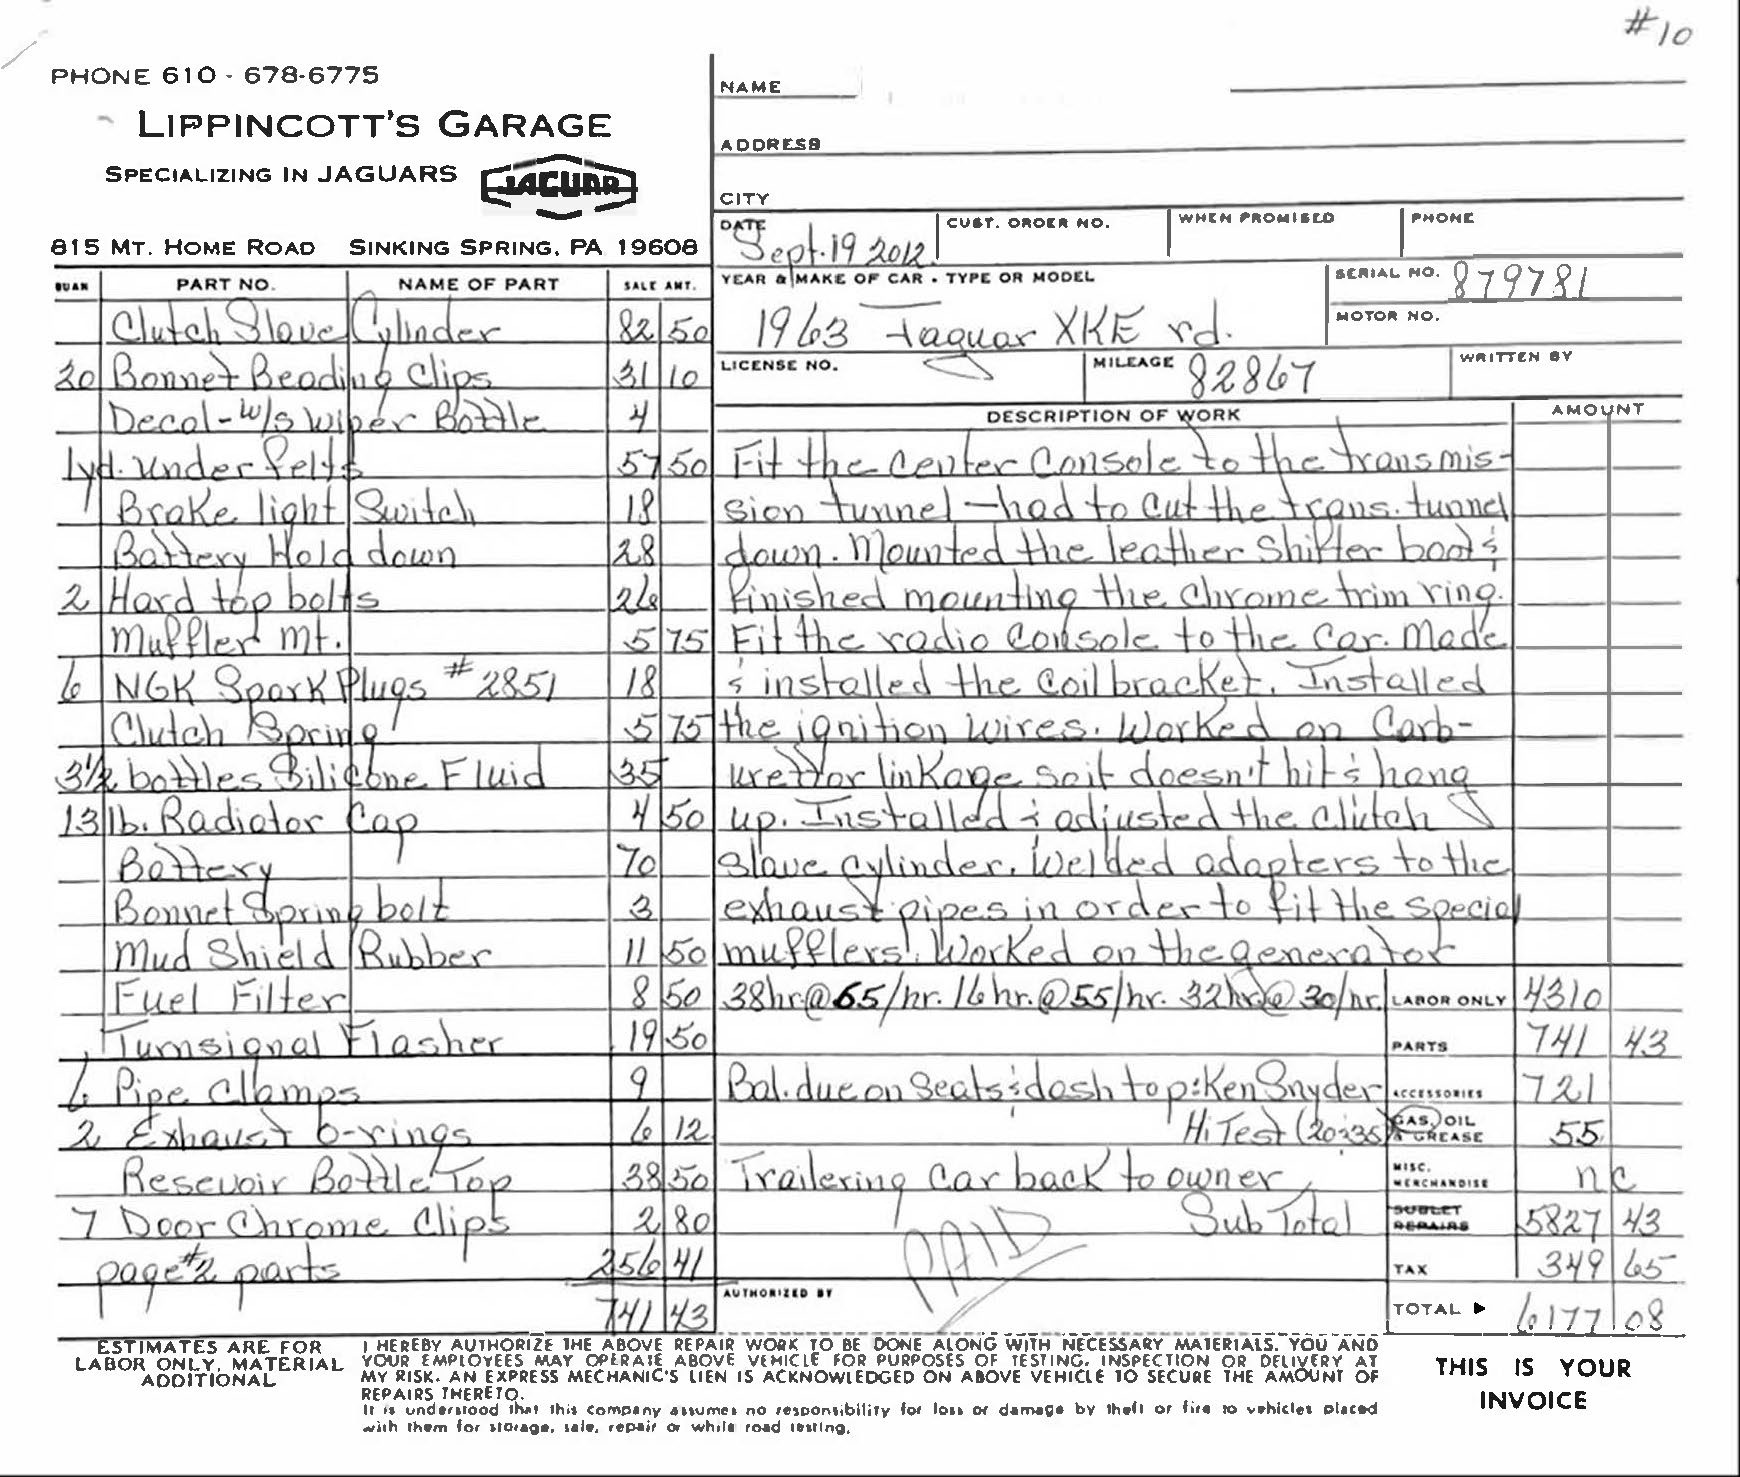 #10
PHONE 610 - 678-6775
LIPPINCOTT'S GARAGE
SPECIALIZING IN JAGUARS
JAGUAR
815 MT. HOME ROAD SINKING SPRING, PA 19608
NAME
ADDRESS
CITY
DATE Sept. 19 2012
CUST. ORDER NO.
WHEN PROMISED
PHONE
YEAR & MAKE OF CAR - TYPE OR MODEL
1963 Jaguar XKE rd.
SERIAL NO. 879781
MOTOR NO.
LICENSE NO.
MILEAGE 82867
WRITTEN BY
QUAN PART NO. NAME OF PART SALE AMT.
Clutch Slave Cylinder 82 50
20 Bonnet Beading Clips 31 10
Decal-w/s wiper Bottle 4
1yd. under felts 57 50
Brake light Switch 18
Battery Hold down 28
2 Hard top bolts 26
Muffler Mt. 5 75
6 NGK Spark Plugs #2851 18
Clutch Spring 5 75
3½ bottles Silicone Fluid 35
13 lb. Radiator Cap 4 50
Battery 70
Bonnet Spring bolt 3
Mud Shield Rubber 11 50
Fuel Filter 8 50
Turnsignal Flasher 19 50
6 Pipe Clamps 9
2 Exhaust o-rings 6 12
Resevoir Bottle Top 38 50
7 Door Chrome Clips 2 80
page #2 parts 256 41
741 43
DESCRIPTION OF WORK AMOUNT
Fit the center console to the transmis-
sion tunnel - had to cut the trans. tunnel
down. Mounted the leather shifter boot &
finished mounting the chrome trim ring.
Fit the radio console to the car. Made
& installed the coil bracket. Installed
the ignition wires. Worked on Carb-
urettor linkage so it doesn't hit & hang
up. Installed & adjusted the clutch
slave cylinder. Welded adapters to the
exhaust pipes in order to fit the special
mufflers. Worked on the generator
38hr.@65/hr. 16hr.@55/hr. 32hr.@30/hr. LABOR ONLY 4310
PARTS 741 43
Bal. due on Seats & dash top: Ken Snyder ACCESSORIES 721
HiTest (20 & 35) GAS, OIL & GREASE 55
Trailering car back to owner MISC. MERCHANDISE nc
Sub Total SUBLET REPAIRS 5827 43
PAID
TAX 349 65
AUTHORIZED BY
TOTAL ▶ 6177 08
ESTIMATES ARE FOR
LABOR ONLY, MATERIAL
ADDITIONAL
I HEREBY AUTHORIZE THE ABOVE REPAIR WORK TO BE DONE ALONG WITH NECESSARY MATERIALS. YOU AND
YOUR EMPLOYEES MAY OPERATE ABOVE VEHICLE FOR PURPOSES OF TESTING, INSPECTION OR DELIVERY AT
MY RISK. AN EXPRESS MECHANIC'S LIEN IS ACKNOWLEDGED ON ABOVE VEHICLE TO SECURE THE AMOUNT OF
REPAIRS THERETO.
It is understood that this company assumes no responsibility for loss or damage by theft or fire to vehicles placed
with them for storage, sale, repair or while road testing.
THIS IS YOUR
INVOICE